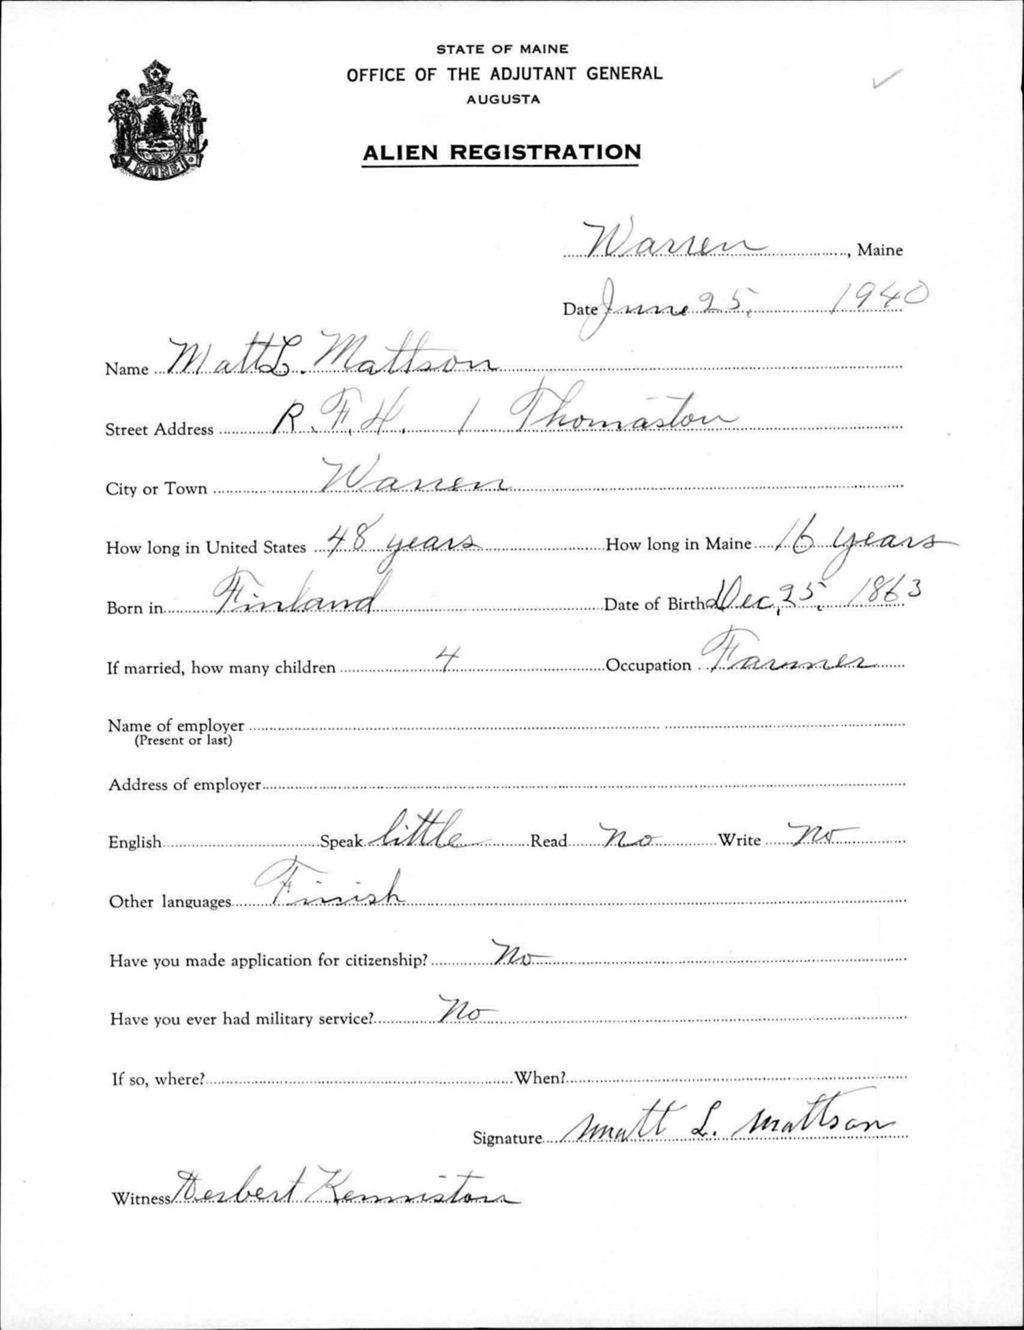 STATE OF MAINE
OFFICE OF THE ADJUTANT GENERAL
AUGUSTA
ALIEN REGISTRATION
Warren, Maine
Date June 25, 1940
Name Matt L. Mattson
Street Address R. F. H. 1 Thomaston
City or Town Warren
How long in United States 48 years How long in Maine 16 years
Born in Finland Date of Birth Dec, 25, 1863
If married, how many children 4 Occupation Farmer
Name of employer
(Present or last)
Address of employer
English Speak little Read no Write no
Other languages Finish
Have you made application for citizenship? No
Have you ever had military service? No
If so, where? When?
Signature Matt L. Mattson
Witness Herbert Kenniston